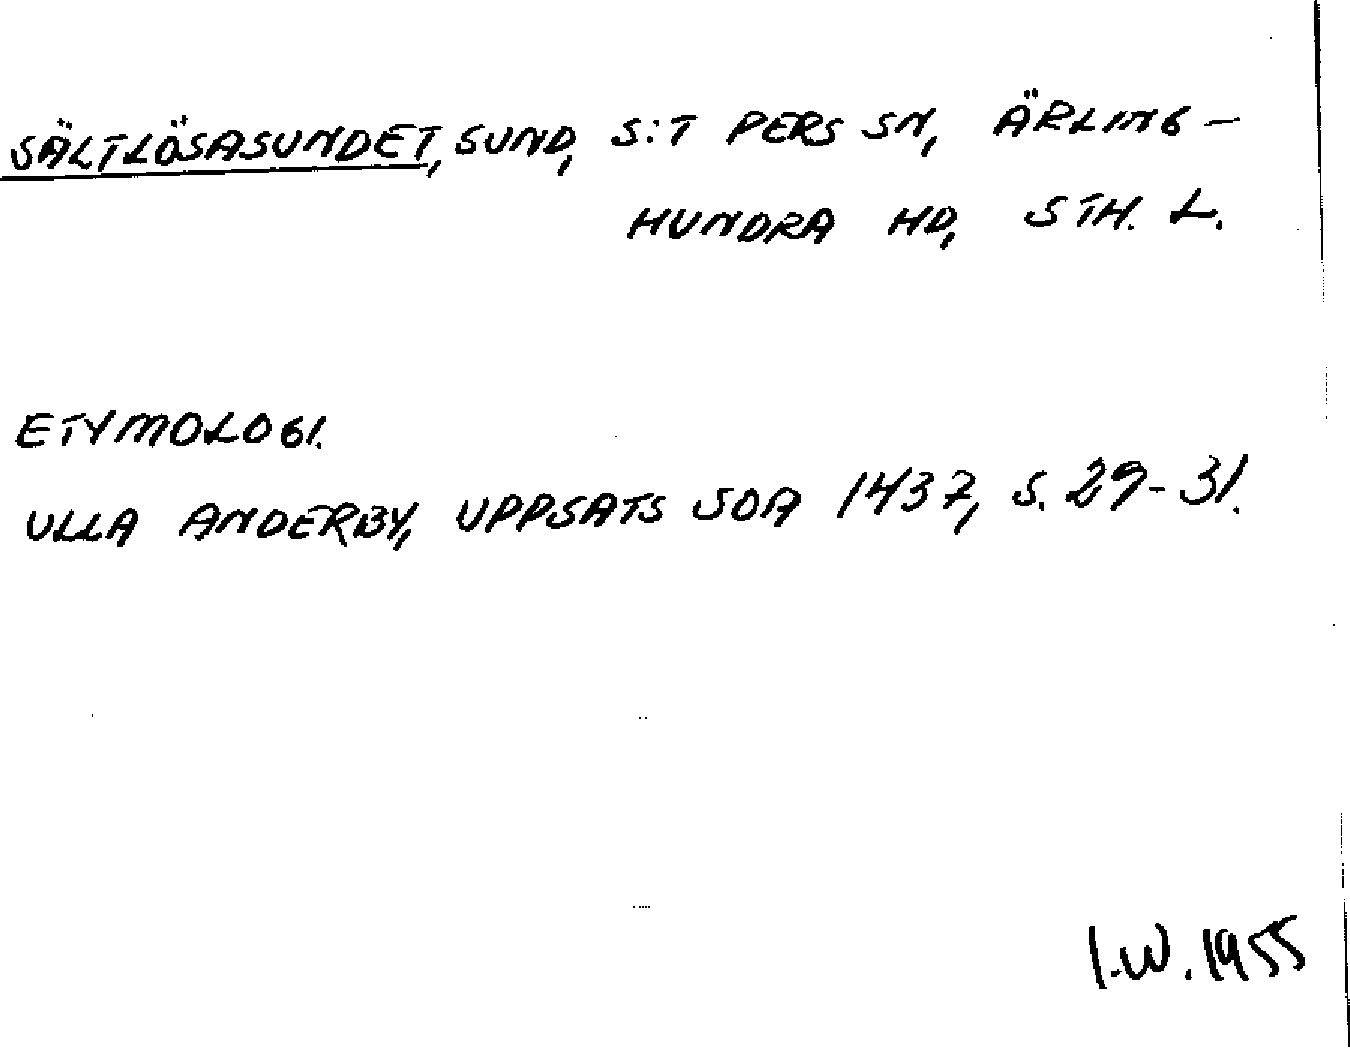 SÄLTLÖSASUNDET, SUND, S:T PERS SN, ÄRLING-
HUNDRA HD, STH. L.
ETYMOLOGI.
ULLA ANDERBY, UPPSATS SOA 1437, S. 29-31.
I.W. 1955